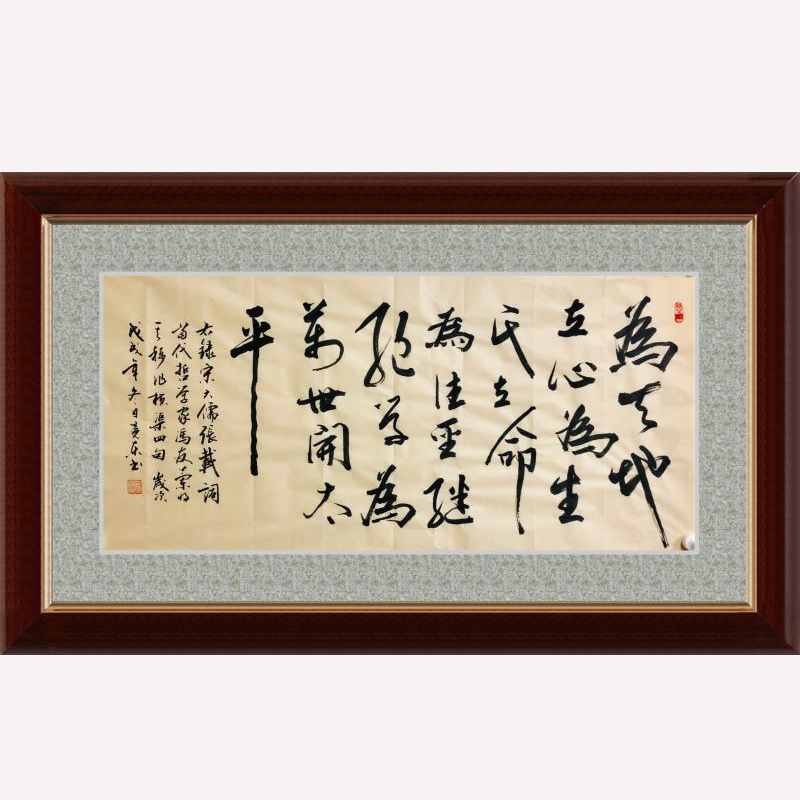 為天地
立心為生
民立命
為往聖继
絕学為
萬世開太
平
右録宋大儒張載詞
当代哲学家馮友蘭将
其稱作橫渠四句 歲次
戊戌年冬日東書